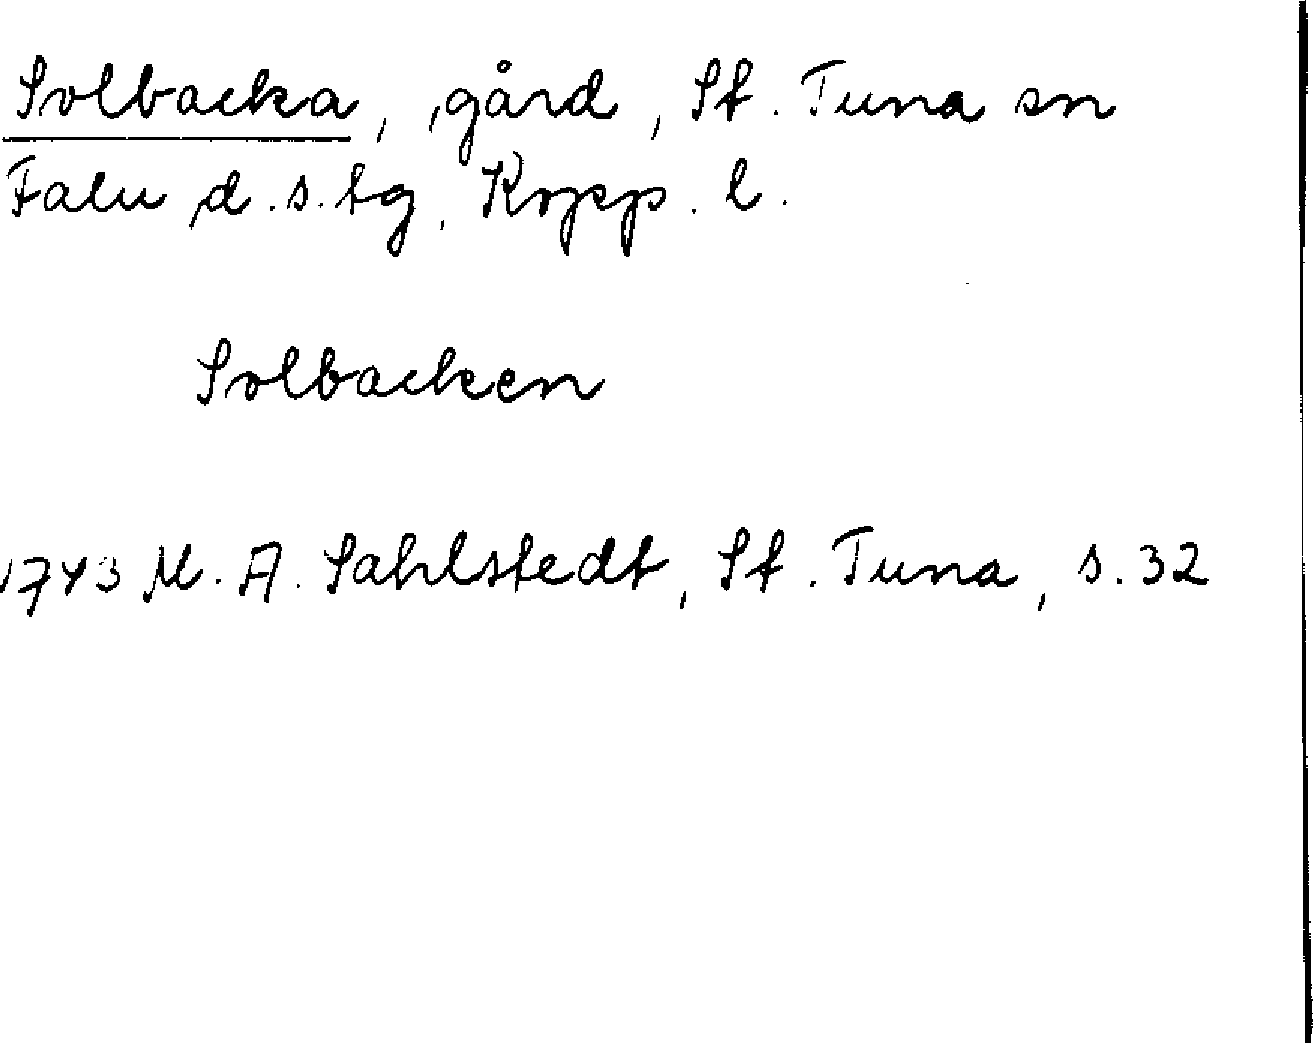 Solbacka, gård, St. Tuna sn
Falu d.s.tg, Kopp. l.
Solbacken
1743 M. A. Sahlstedt, St. Tuna, s. 32